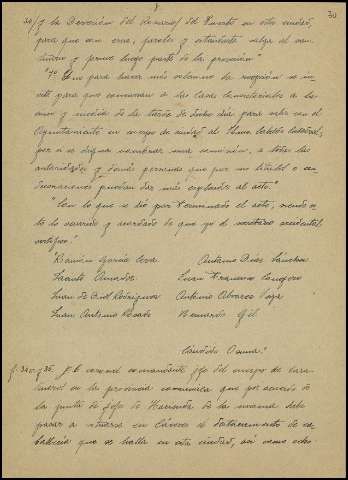 30
y la Devoción del Rosario del Puerto en esta ciudad,
para que con cruz, faroles y estandarte salga al san-
tuario y forme luego parte de la procesión"
"7º Que para hacer más solemne la recepción se in-
vite para que concurran a las Casas Consistoriales a las
cinco y media de la tarde de dicho día para salir con el
Ayuntamiento en cuerpo de ciudad al Ilmo. Cabildo Catedral,
por si se digna nombrar una comisión, a todas las
autoridades y demás personas que por sus títulos o con-
decoraciones puedan dar más esplendor al acto."
"Con lo que se dió por terminado el acto, siendo es-
to lo ocurrido y acordado de que yo el secretario accidental
certifico."
"Ramón García Cera Antonio Diez Sánchez
Jacinto Amador Juan Francisco
Juan de Dios Rodríguez Antonio Alvarez Vega
Juan Antonio Rosado Bernardo Gil
Candido Osuna."
El coronel comandante jefe del cuerpo de cara-
bineros en la provincia comunica que por acuerdo de
la junta de jefes de Hacienda de la misma debe
pasar a situarse en Cáceres el destacamento de ca-
ballería que se halla en esta ciudad, así como ocho